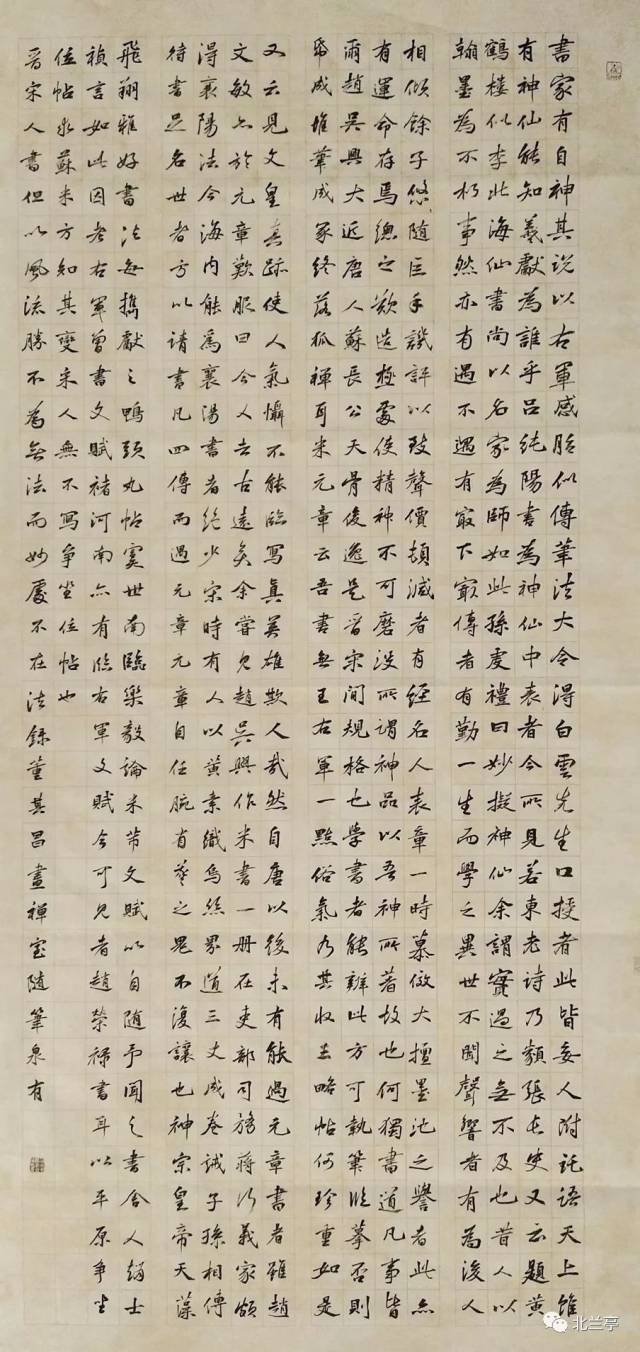 書家有自神其說以右軍感胎似傳筆法大令得白雲先生口授者此皆妄人附託語天上雖
有神仙能知羲獻為誰乎呂純陽書為神仙中表者今所見若東老詩乃類張長史又云題黃
鶴樓似李北海仙書尚以名家為師如此孫虔禮曰妙擬神仙余謂實過之無不及也昔人以
翰墨為不朽事然亦有遇不遇有最下最傳者有勤一生而學之異世不聞聲響者有為後人
相傾餘子悠悠隨巨手譏評以致聲價頓減者有經名人表章一時慕倣大擅墨池之譽者此亦
有運命存焉總之欲造極處使精神不可磨沒所謂神品以吾神所著故也何獨書道凡事皆
爾趙吳興大近唐人蘇長公天骨俊逸是晉宋間規格也學書者能辨此方可執筆臨摹否則
紙成堆筆成冢終落狐禪耳米元章云吾書無王右軍一點俗氣乃其收王略帖何珍重如是
又云見文皇真跡使人氣懾不能臨寫真英雄欺人哉然自唐以後未有能過元章書者雖趙
文敏亦於元章歎服曰今人去古遠矣余嘗見趙吳興作米書一冊在吏部司務蔣行義家頗
得襄陽法今海內能為襄陽書者絕少宋時有人以黃素織烏絲界道三丈成卷誠子孫相傳
待書足名世者方以請書凡四傳而遇元章元章自任腕有羲之鬼不復讓也神宗皇帝天藻
飛翔雅好書法每携獻之鴨頭丸帖虞世南臨樂毅論米芾文賦以自隨予聞之書舍人趙士
禎言如此因考右軍曾書文賦褚河南亦有臨右軍文賦今可見者趙榮祿書耳以平原爭坐
位帖求蘇米方知其變宋人無不寫爭坐位帖也
晉宋人書但以風流勝不為無法而妙處不在法錄董其昌畫禪室隨筆泉有
北兰亭